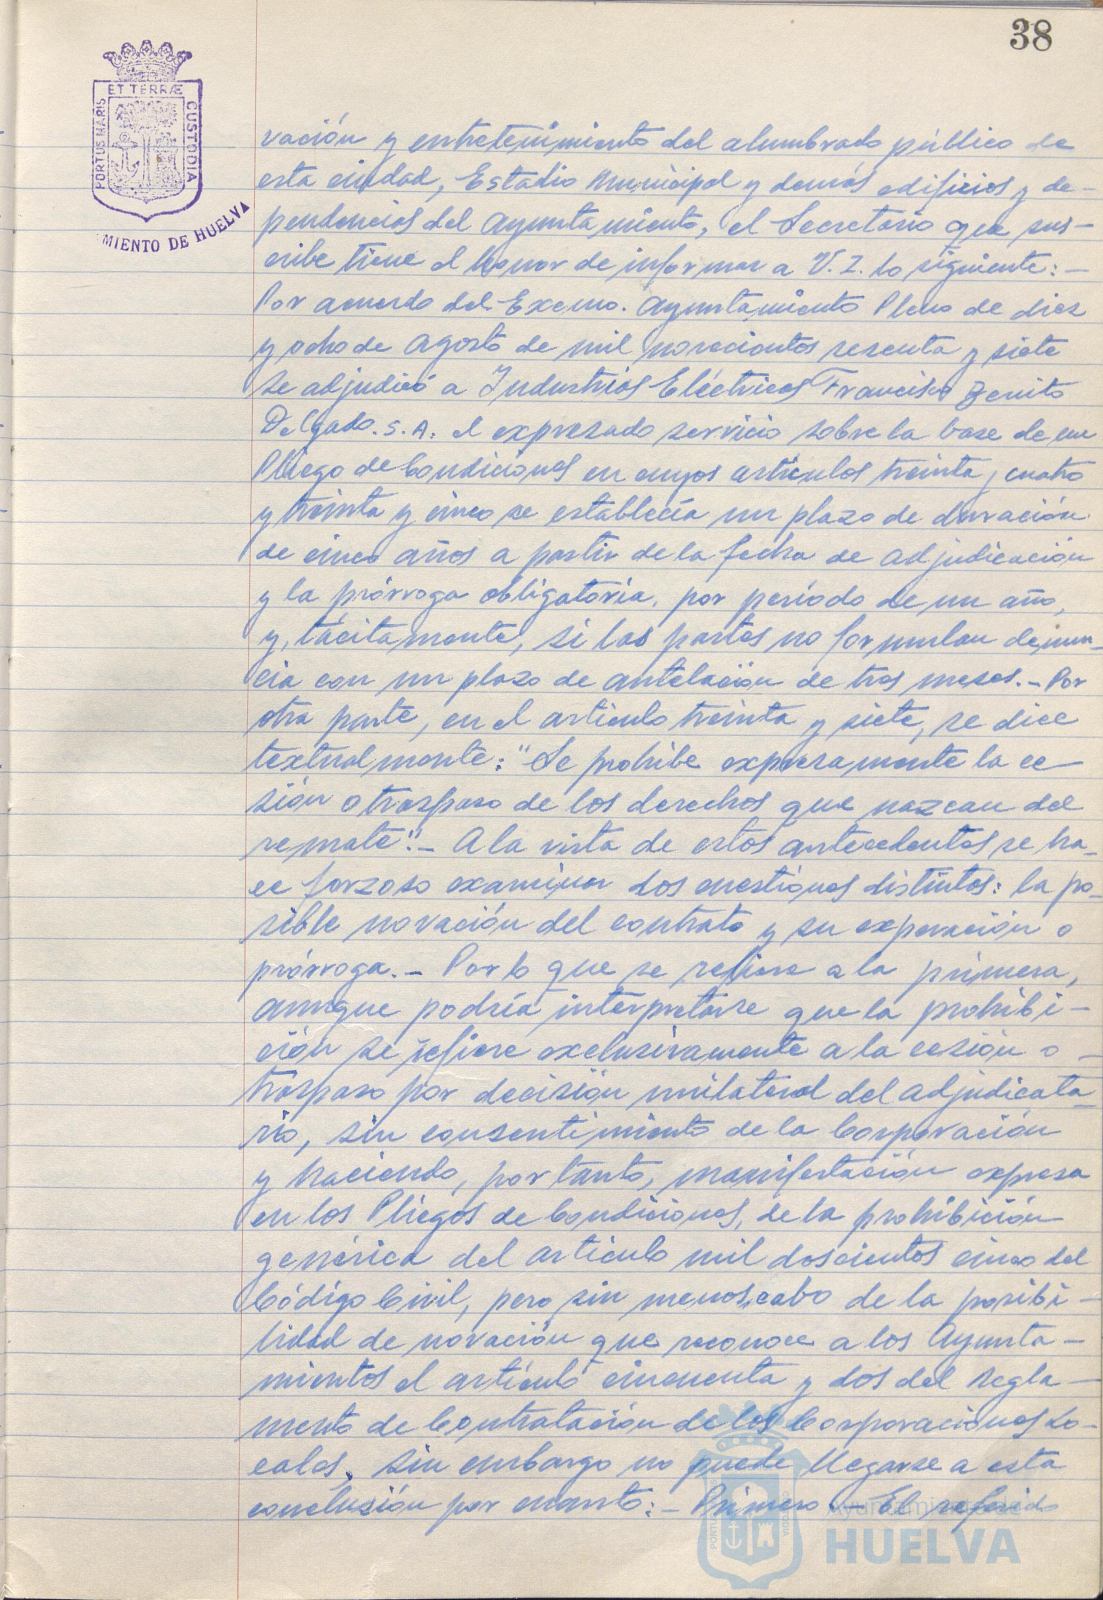 38
PORTUS MARIS ET TERRÆ CUSTODIA
MIENTO DE HUELVA
vación y entretenimiento del alumbrado público de
esta ciudad, Estadio Municipal y demás edificios y de-
pendencias del Ayuntamiento, el Secretario que sus-
cribe tiene el honor de informar a V. I. lo siguiente: -
Por acuerdo del Excmo. Ayuntamiento Pleno de diez
y ocho de Agosto de mil novecientos sesenta y siete
se adjudicó a Industrias Eléctricas Francisco Benito
Delgado. S. A. el expresado servicio sobre la base de un
Pliego de Condiciones en cuyos artículos treinta y cuatro
y treinta y cinco se establecía un plazo de duración
de cinco años a partir de la fecha de adjudicación
y la prórroga obligatoria, por período de un año,
y, tácitamente, si las partes no formulan denun-
cia con un plazo de antelación de tres meses. - Por
otra parte, en el artículo treinta y siete, se dice
textualmente: "Se prohibe expresamente la ce
sión o traspaso de los derechos que nazcan del
remate". - A la vista de estos antecedentes se ha-
ce forzoso examinar dos cuestiones distintas: la po-
sible novación del contrato y su expiración o
prórroga. - Por lo que se refiere a la primera,
aunque podría interpretarse que la prohibi-
ción se refiere exclusivamente a la cesión o -
traspaso por decisión unilateral del adjudicata-
rio, sin consentimiento de la Corporación
y haciendo, por tanto, manifestación expresa
en los Pliegos de Condiciones, de la prohibición
genérica del artículo mil doscientos cinco del
Código Civil, pero sin menoscabo de la posibi-
lidad de novación que reconoce a los Ayunta-
mientos el artículo cincuenta y dos del Regla-
mento de Contratación de las Corporaciones Lo-
cales, sin embargo no puede llegarse a esta
conclusión por cuanto: - Primero. El referido
Ayuntamiento de
HUELVA